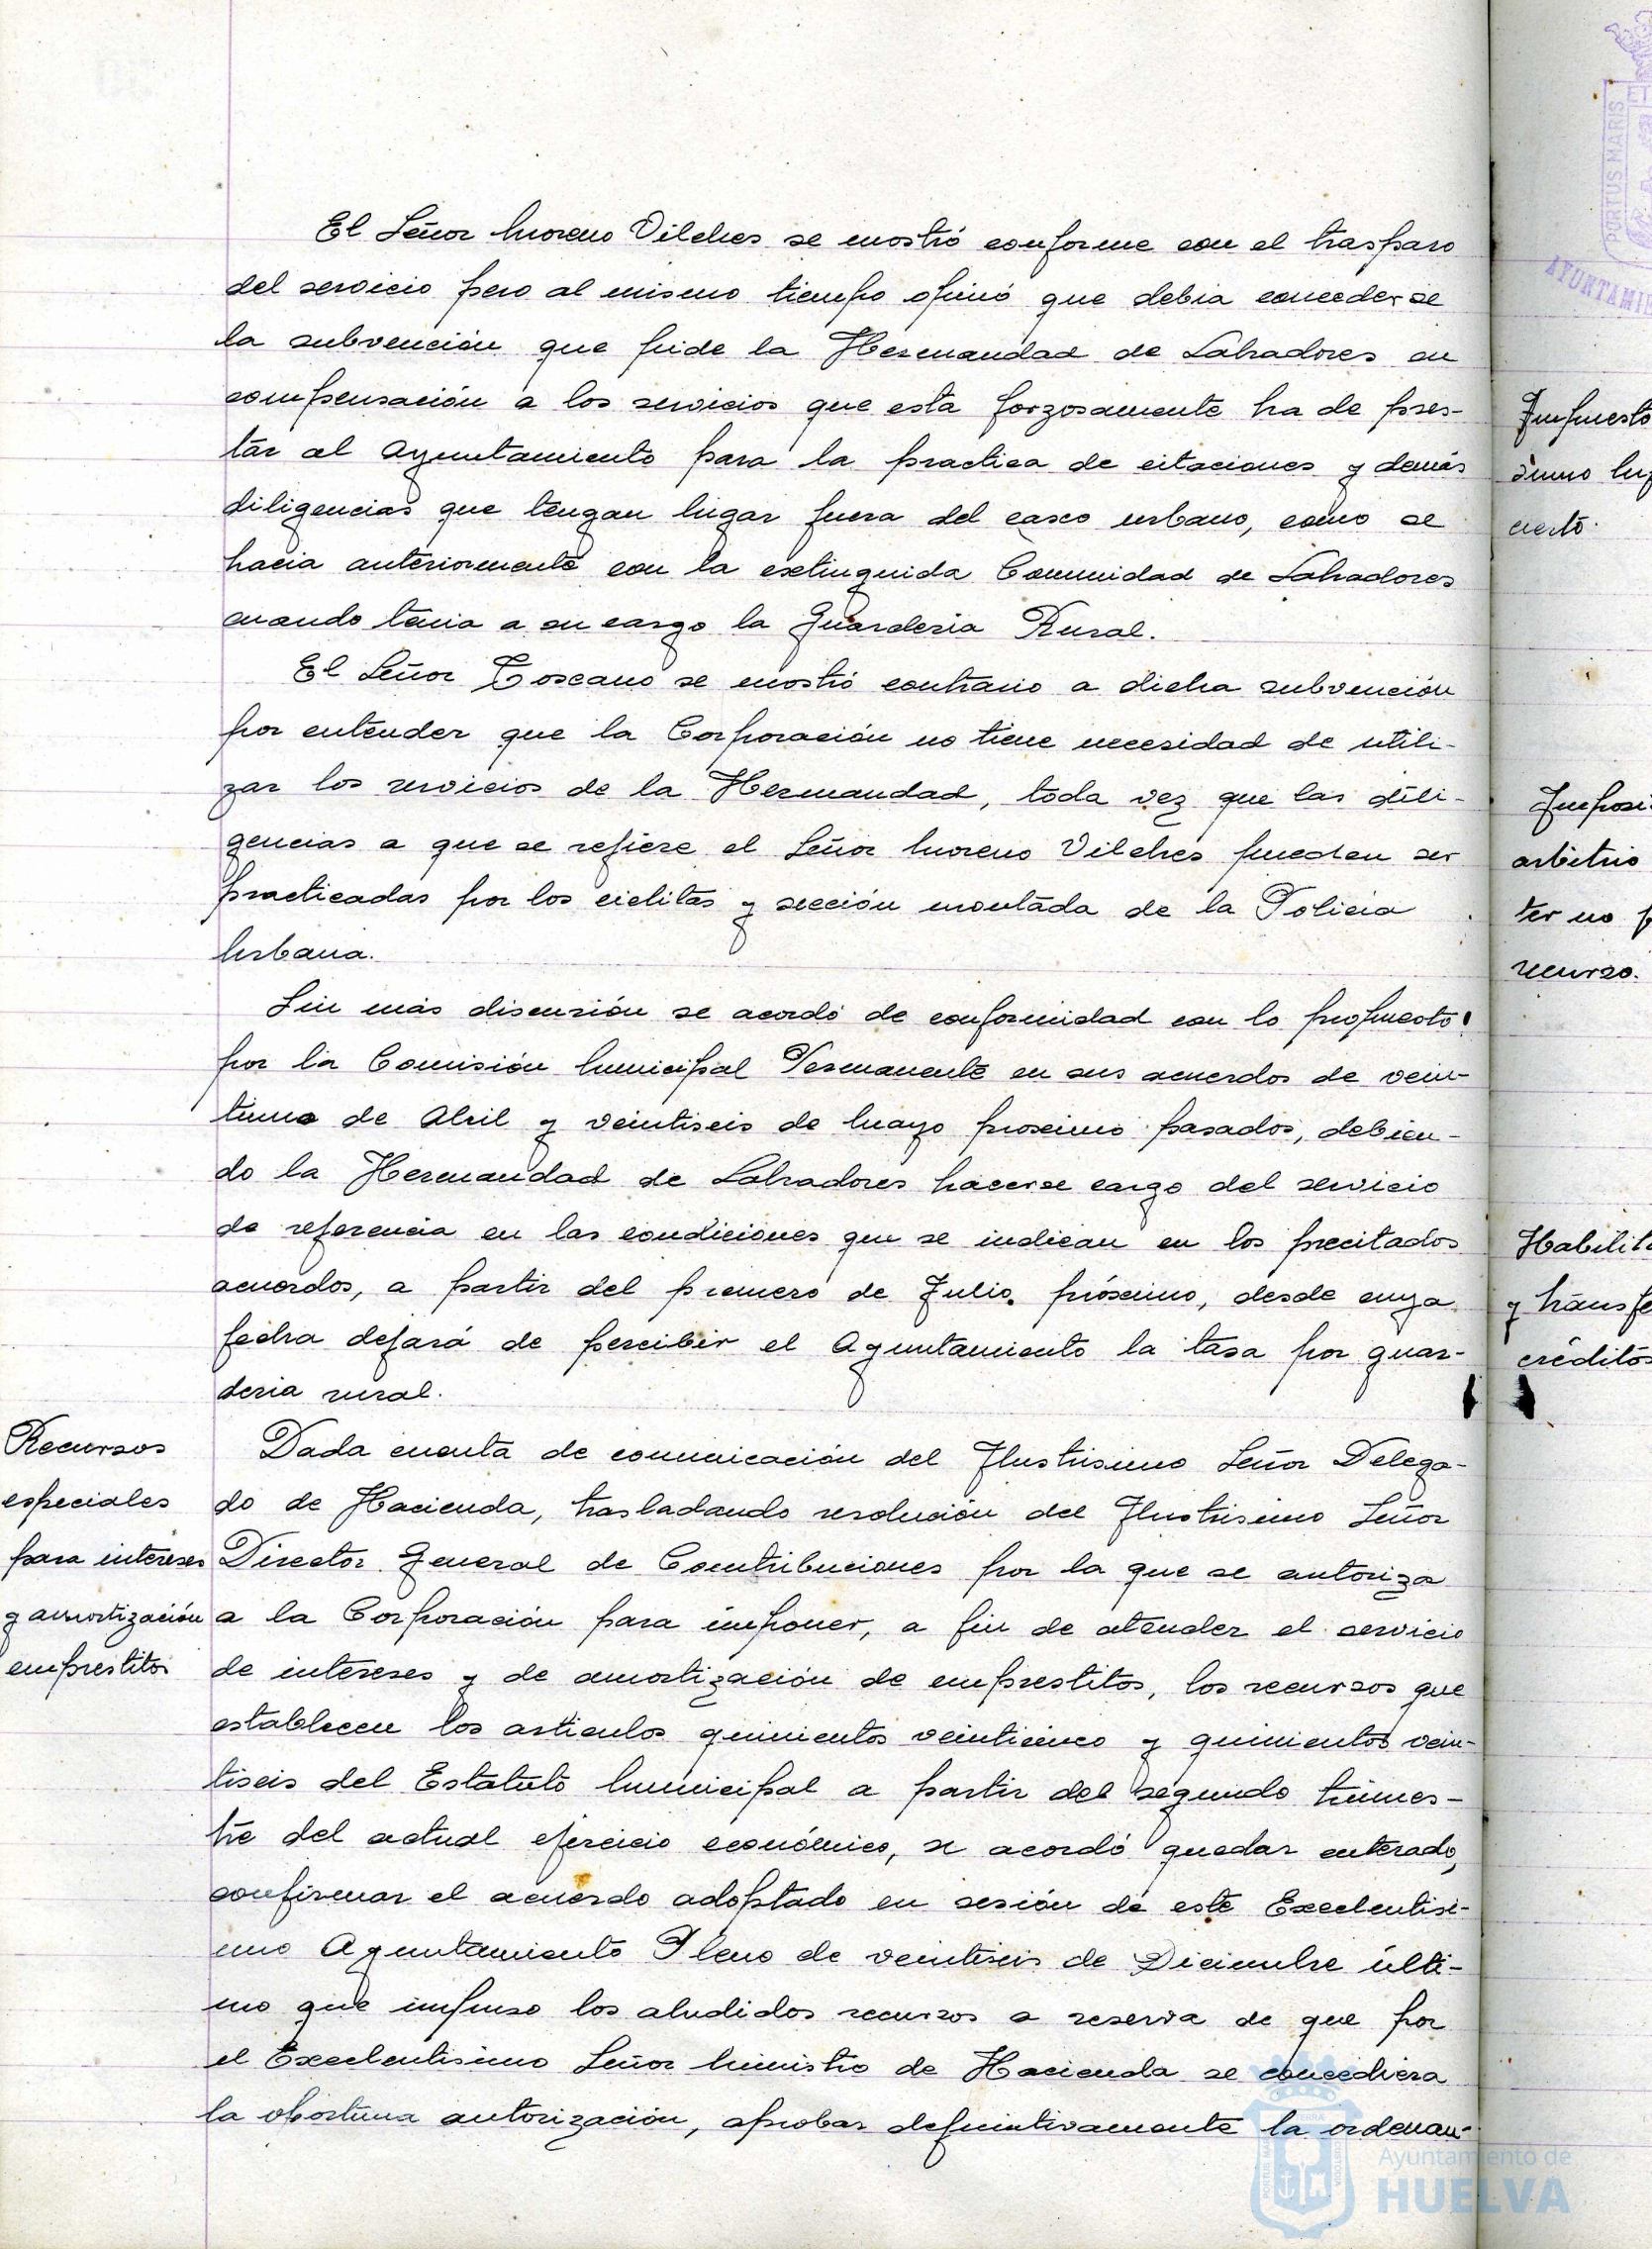 El Señor Moreno Vilches se mostró conforme con el traspaso
del servicio pero al mismo tiempo opinó que debia concederse
la subvención que pide la Hermandad de Labradores en
compensación a los servicios que esta forzosamente ha de pres-
tár al Ayuntamiento para la practica de citaciones y demás
diligencias que tengan lugar fuera del casco urbano, como se
hacia anteriormente con la extinguida Comunidad de Labradores
cuando tenia a su cargo la Guarderia Rural.
El Señor Toscano se mostró contrario a dicha subvención
por entender que la Corporación no tiene necesidad de utili-
zar los servicios de la Hermandad, toda vez que las dili-
gencias a que se refiere el Señor Moreno Vilches pueden ser
practicadas por los ciclitas y sección montada de la Policia
Urbana.
Sin más discusión se acordó de conformidad con lo propuesto
por la Comisión Municipal Permanente en sus acuerdos de vein-
tiuno de Abril y veintiseis de Mayo proximo pasados, debien-
do la Hermandad de Labradores hacerse cargo del servicio
de referencia en las condiciones que se indican en los precitados
acuerdos, a partir del primero de Julio próximo, desde cuya
fecha dejará de percibir el Ayuntamiento la tasa por guar-
deria rural.
Recursos
especiales
para intereses
y amortización
emprestitos
Dada cuenta de comunicación del Ilustrisimo Señor Delega-
do de Hacienda, trasladando resolución del Ilustrisimo Señor
Director General de Contribuciones por la que se autoriza
a la Corporación para imponer, a fin de atender el servicio
de intereses y de amortización de emprestitos, los recursos que
establecen los articulos quinientos veinticinco y quinientos vein-
tiseis del Estatuto Municipal a partir del segundo trimes-
tre del actual ejercicio económico, se acordó quedar enterado,
confirmar el acuerdo adoptado en sesión de este Excelentisi-
mo Ayuntamiento Pleno de veintiseis de Diciembre últi-
mo que impuso los aludidos recursos a reserva de que por
el Excelentisimo Señor Ministro de Hacienda se concediera
la oportuna autorización, aprobar definitivamente la ordenan-
PORTUS MARIS
AYUNTAMIE
Impuesto
cierto.
Imposi
arbitrio
ter no p
recurso.
Habilita
y transfe
créditos
Ayuntamiento de
HUELVA